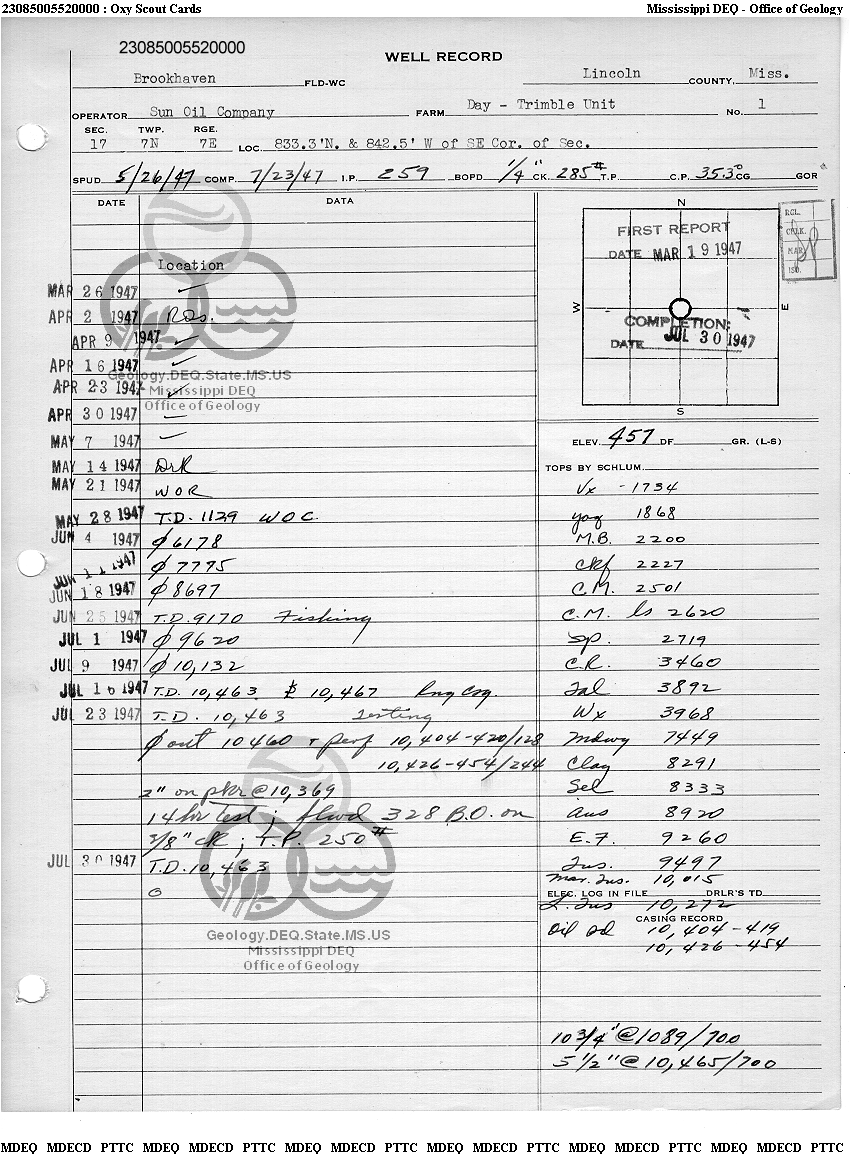 23085005520000 : Oxy Scout Cards
Mississippi DEQ - Office of Geology
23085005520000
WELL RECORD
Brookhaven FLD-WC Lincoln COUNTY, Miss.
OPERATOR Sun Oil Company FARM Day - Trimble Unit No. 1
SEC. TWP. RGE.
17 7N 7E LOC. 833.3'N. & 842.5' W of SE Cor. of Sec.
SPUD 5/26/47 COMP. 7/23/47 I.P. 259 BOPD 1/4" CK. 285# T.P. C.P. 35.3° CG GOR
DATE DATA
Location
MAR 26 1947 ✓
APR 2 1947 RDs.
APR 9 1947 ✓
APR 16 1947 ✓
APR 23 1947 ✓
APR 30 1947 ✓
MAY 7 1947 ✓
MAY 14 1947 DrR
MAY 21 1947 WOR
MAY 28 1947 T.D. 1129 WOC.
JUN 4 1947 ∅ 6178
JUN 11 1947 ∅ 7795
JUN 18 1947 ∅ 8697
JUN 25 1947 T.D. 9170 Fishing
JUL 1 1947 ∅ 9620
JUL 9 1947 ∅ 10,132
JUL 16 1947 T.D. 10,463 10,467 Rng Csg.
JUL 23 1947 T.D. 10,463 Testing
∅ out 10460 + perf 10,404-420/128
10,426-454/244
2" on pkr @ 10,369
14 hr test; flwd 328 B.O. on
3/8" ck; T.P. 250#
JUL 30 1947 T.D. 10,463
O
RCL.
CHLK.
MAP
ISO.
N
FIRST REPORT
DATE MAR 19 1947
W E
COMPLETION:
DATE JUL 30 1947
S
ELEV. 457 DF GR. (L-S)
TOPS BY SCHLUM.
Vx -1734
yaz 1868
M.B. 2200
Ckf 2227
C.M. 2501
C.M. ls 2620
Sp. 2719
C.R. 3460
Tal 3892
Wx 3968
Mdwy 7449
Clay 8291
Sel 8333
Aus 8920
E.F. 9260
Tus. 9497
Mar. Tus. 10,015
ELEC. LOG IN FILE DRLR'S TD
L. Tus 10,272
CASING RECORD
Oil Sd 10,404-419
10,426-454
10 3/4" @ 1089/700
5 1/2" @ 10,465/700
Geology.DEQ.State.MS.US
Mississippi DEQ
Office of Geology
Geology.DEQ.State.MS.US
Mississippi DEQ
Office of Geology
MDEQ MDECD PTTC MDEQ MDECD PTTC MDEQ MDECD PTTC MDEQ MDECD PTTC MDEQ MDECD PTTC MDEQ MDECD PTTC